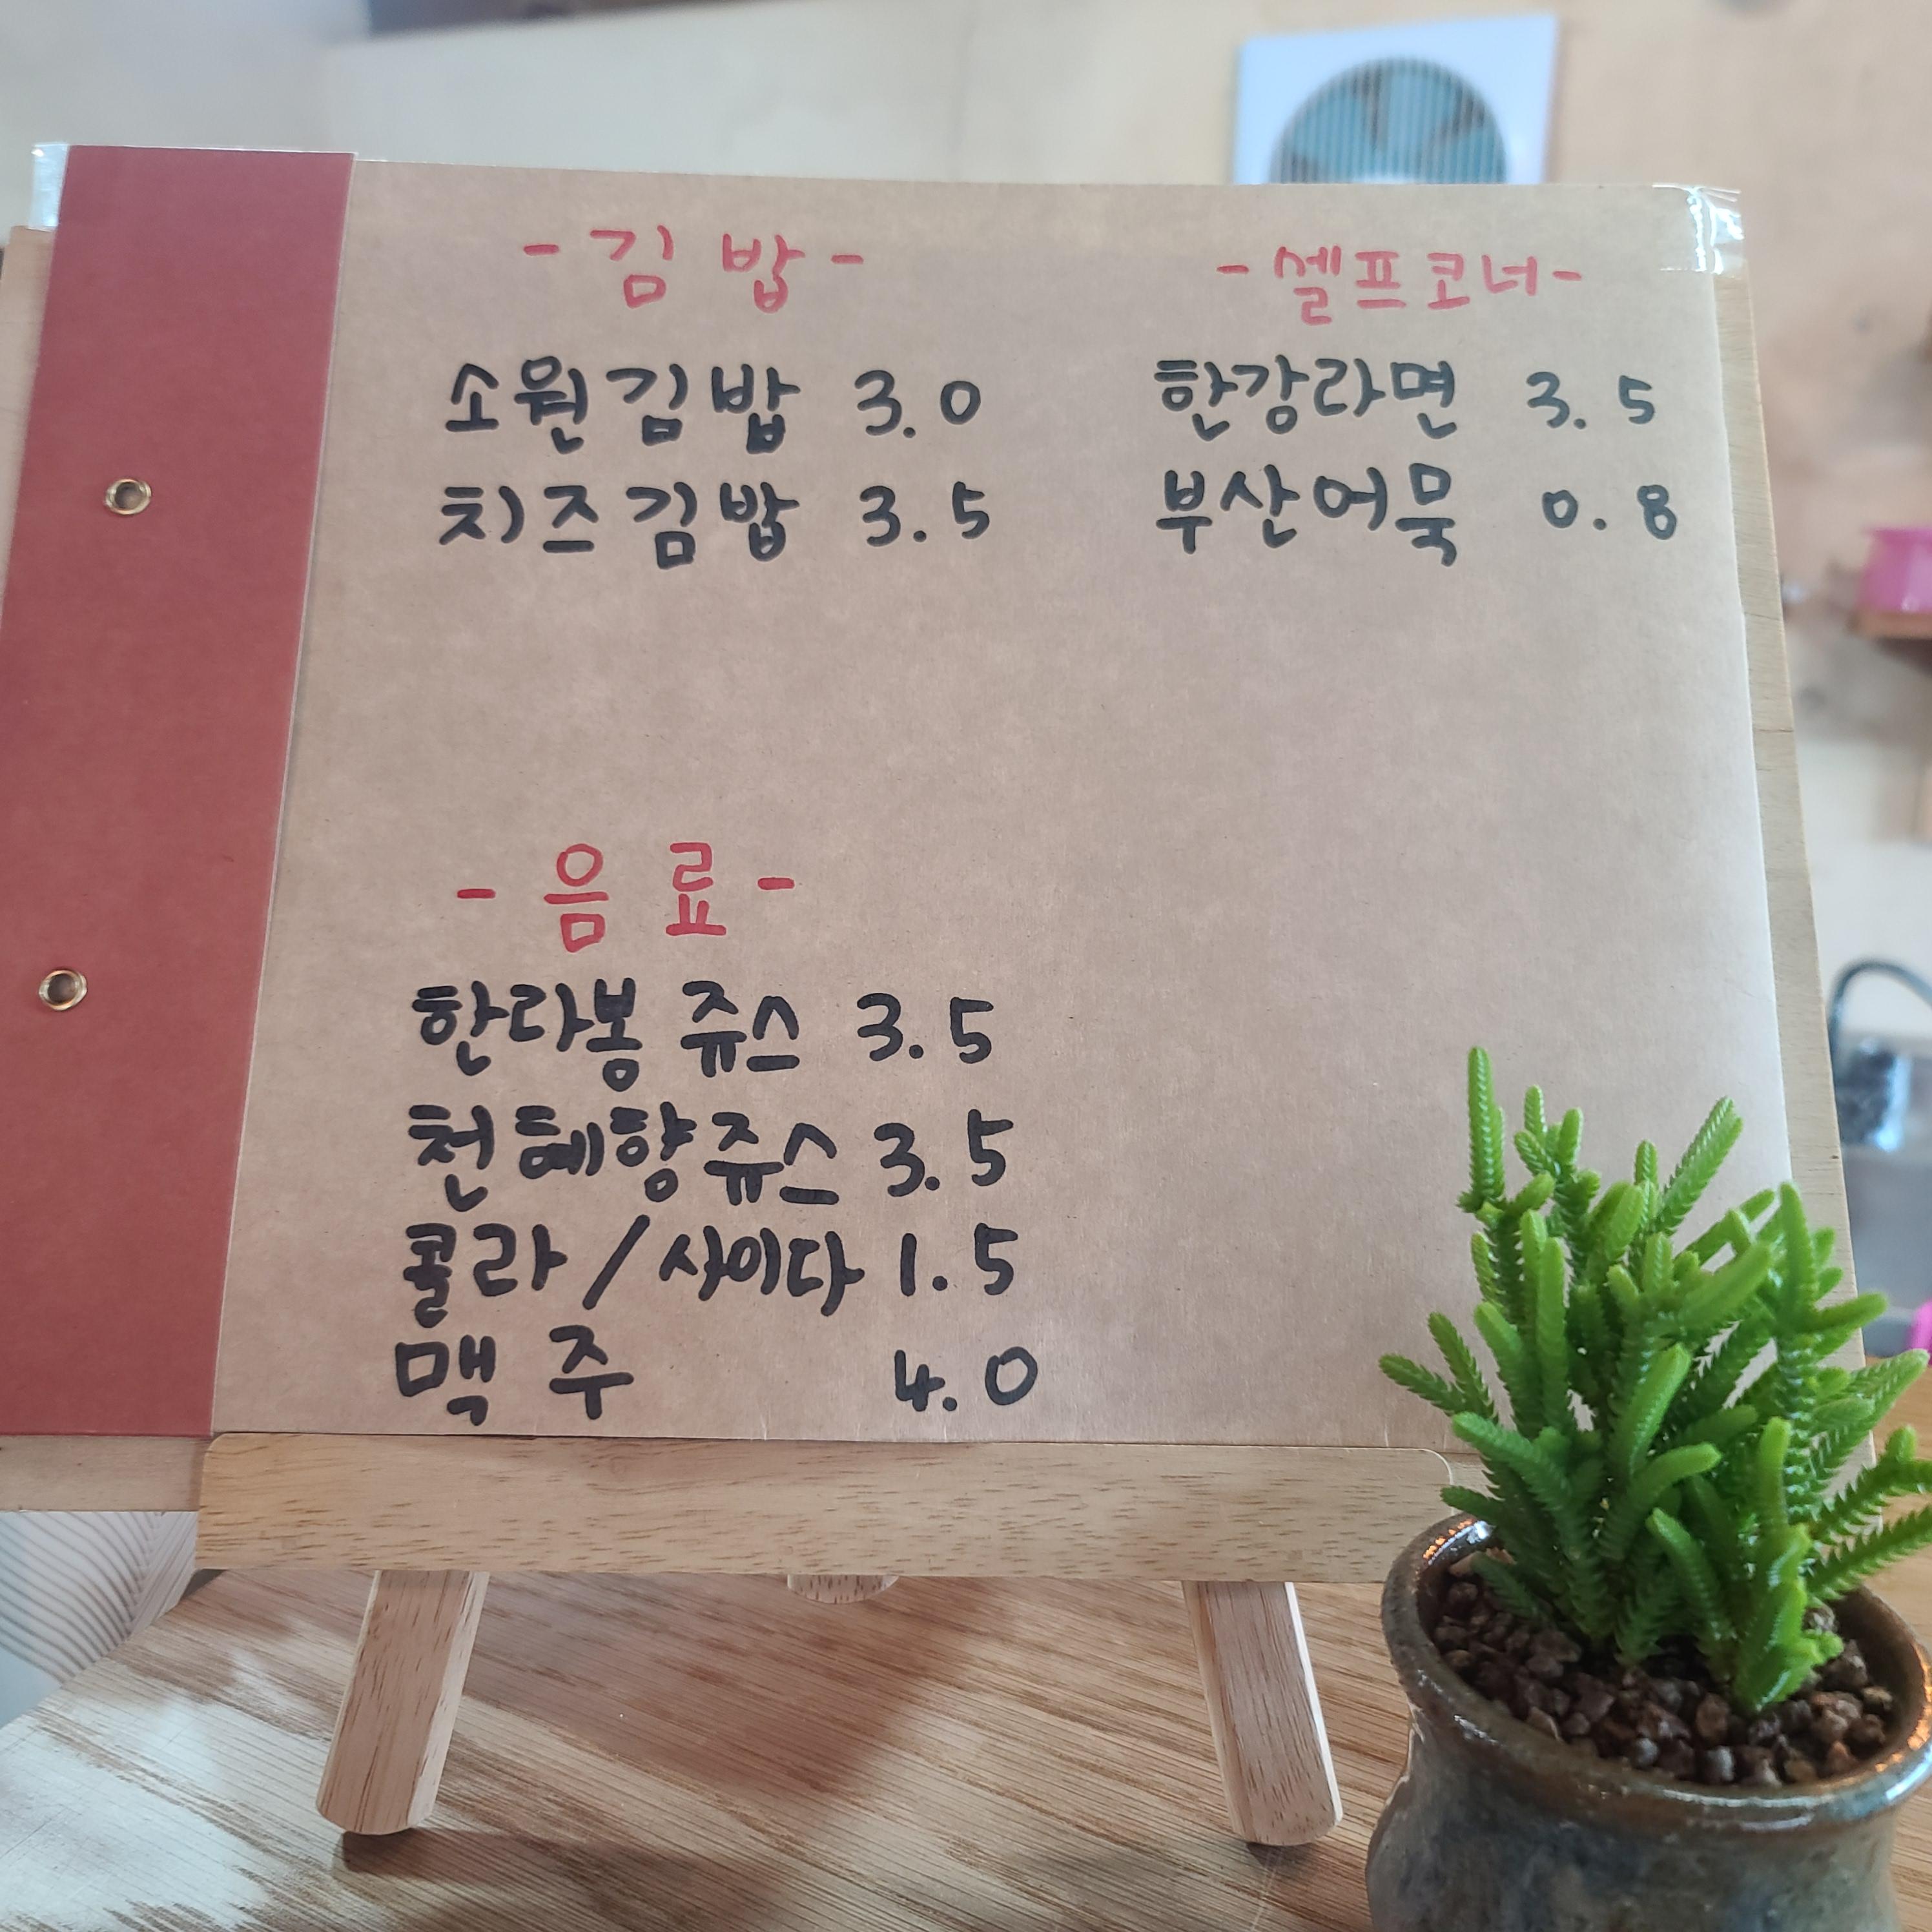 - 김 밥 -
소원김밥 3.0
치즈김밥 3.5
- 셀프코너 -
한강라면 3.5
부산어묵 0.8
- 음 료 -
한라봉 쥬스 3.5
천혜향쥬스 3.5
콜라 / 사이다 1.5
맥 주 4.0